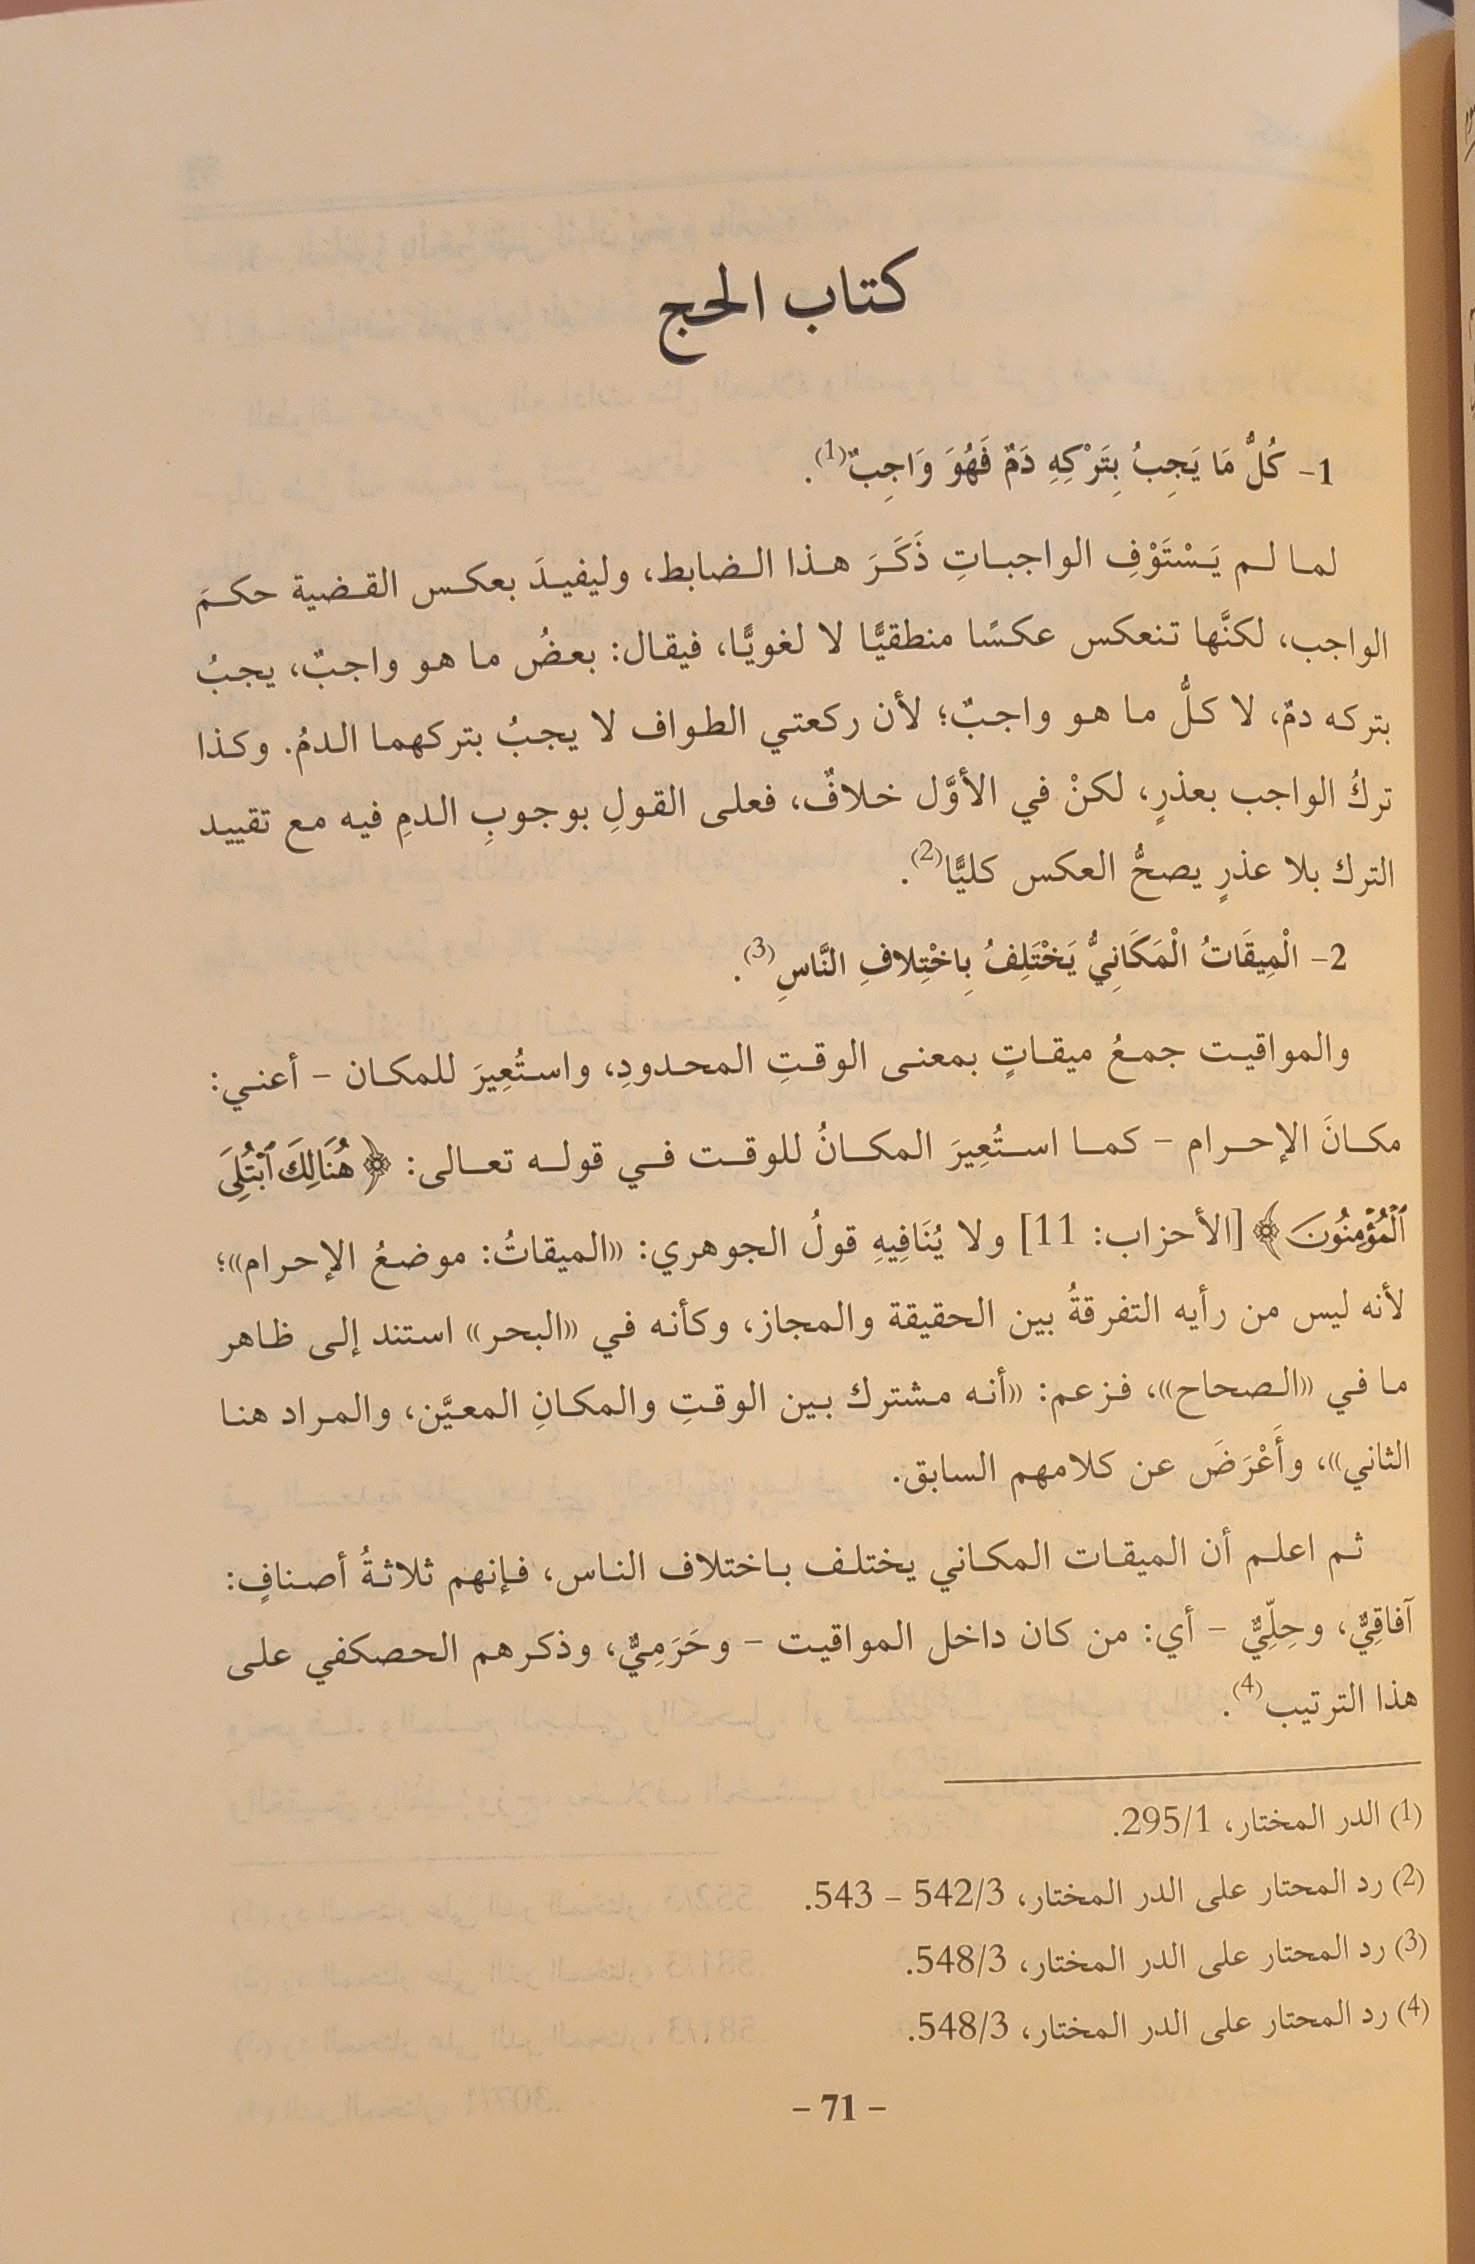 كتاب الحج
1- كُلُّ مَا يَجِبُ بِتَرْكِهِ دَمٌ فَهُوَ وَاجِبٌ(1).
لما لم يَسْتَوْفِ الواجباتِ ذَكَرَ هذا الضابط، وليفيدَ بعكس القضية حكمَ
الواجب، لكنَّها تنعكس عكسًا منطقيًّا لا لغويًّا، فيقال: بعضُ ما هو واجبٌ، يجبُ
بتركه دمٌ، لا كلُّ ما هو واجبٌ؛ لأن ركعتي الطواف لا يجبُ بتركهما الدمُ. وكذا
تركُ الواجب بعذرٍ، لكنْ في الأوَّل خلافٌ، فعلى القولِ بوجوبِ الدمِ فيه مع تقييد
الترك بلا عذرٍ يصحُّ العكس كليًّا(2).
2- الْمِيقَاتُ الْمَكَانِيُّ يَخْتَلِفُ بِاخْتِلافِ النَّاسِ(3).
والمواقيت جمعُ ميقاتٍ بمعنى الوقتِ المحدودِ، واستُعِيرَ للمكان – أعني:
مكانَ الإحرام – كما استُعِيرَ المكانُ للوقت في قوله تعالى: ﴿هُنَالِكَ ٱبْتُلِيَ
ٱلْمُؤْمِنُونَ﴾ [الأحزاب: 11] ولا يُنَافِيهِ قولُ الجوهري: «الميقاتُ: موضعُ الإحرام»؛
لأنه ليس من رأيه التفرقةُ بين الحقيقة والمجاز، وكأنه في «البحر» استند إلى ظاهر
ما في «الصحاح»، فزعم: «أنه مشترك بين الوقتِ والمكانِ المعيَّن، والمراد هنا
الثاني»، وأَعْرَضَ عن كلامهم السابق.
ثم اعلم أن الميقات المكاني يختلف باختلاف الناس، فإنهم ثلاثةُ أصنافٍ:
آفاقِيٌّ، وحِلِّيٌّ – أي: من كان داخل المواقيت – وحَرَمِيٌّ، وذكرهم الحصكفي على
هذا الترتيب(4).
(1) الدر المختار، 295/1.
(2) رد المحتار على الدر المختار، 542/3 – 543.
(3) رد المحتار على الدر المختار، 548/3.
(4) رد المحتار على الدر المختار، 548/3.
– 71 –